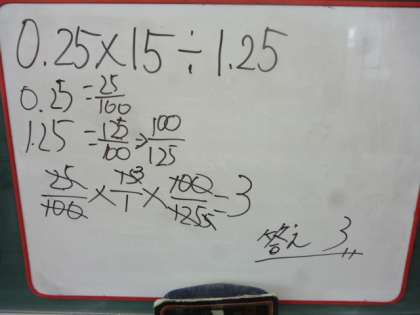 0.25×15÷1.25
0.25=25/100
1.25=125/100→100/125
25/100×15 3/1×100/125 5=3
答え 3